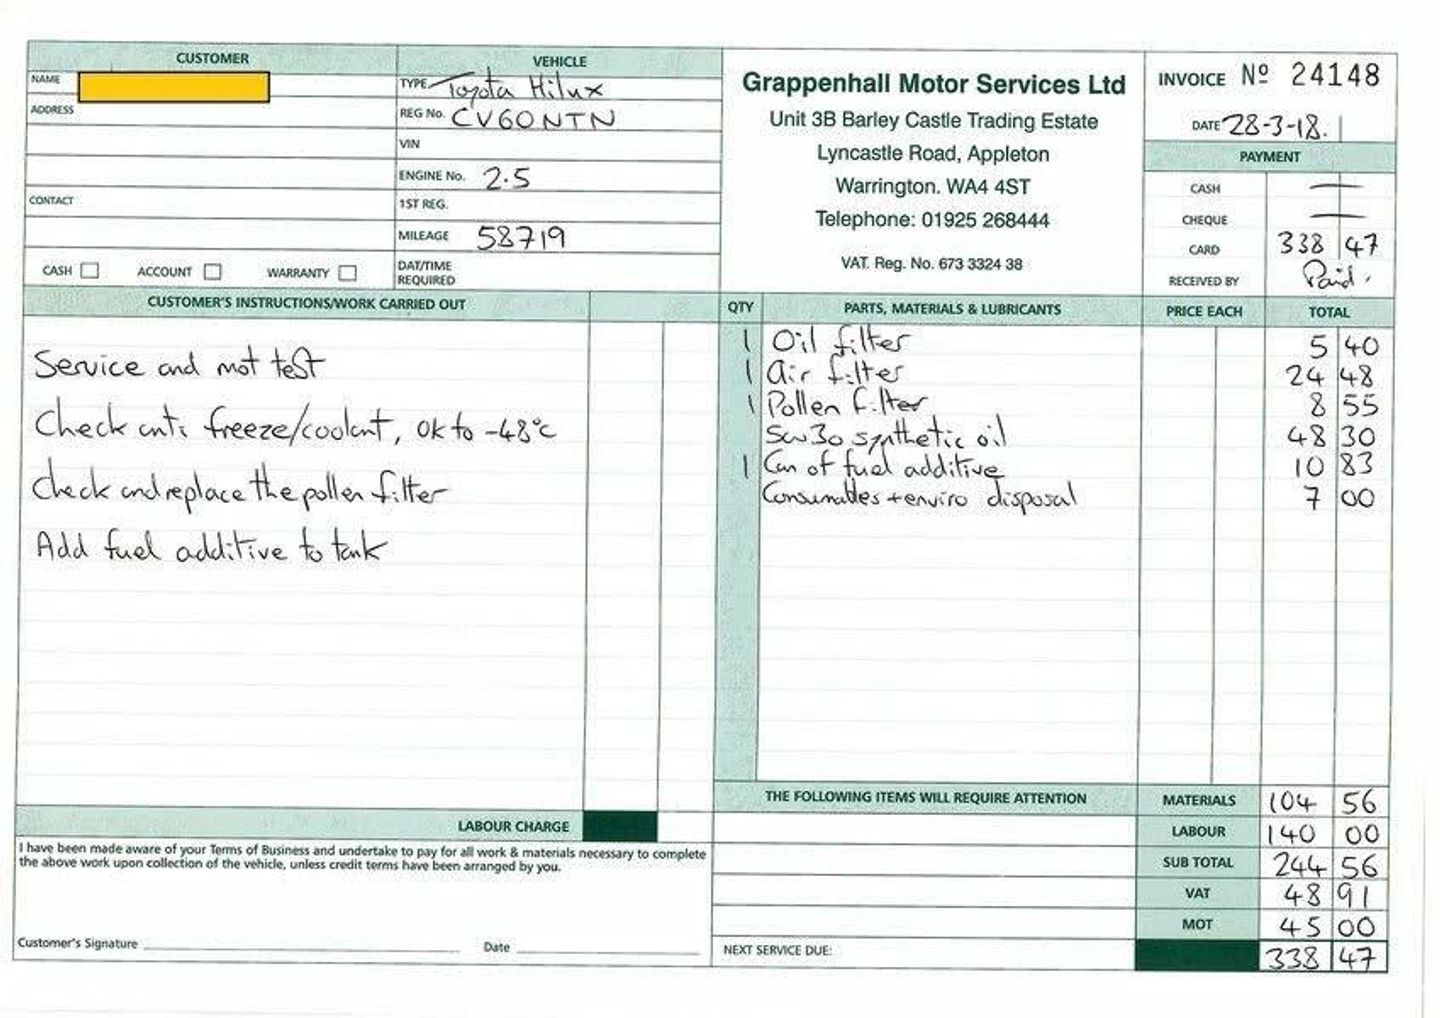 CUSTOMER
NAME
ADDRESS
CONTACT
CASH ACCOUNT WARRANTY
VEHICLE
TYPE Toyota Hilux
REG No. CV60NTN
VIN
ENGINE No. 2.5
1ST REG.
MILEAGE 58719
DAT/TIME
REQUIRED
Grappenhall Motor Services Ltd
Unit 3B Barley Castle Trading Estate
Lyncastle Road, Appleton
Warrington. WA4 4ST
Telephone: 01925 268444
VAT. Reg. No. 673 3324 38
INVOICE Nº 24148
DATE 28-3-18.
PAYMENT
CASH —
CHEQUE —
CARD 338 47
RECEIVED BY Paid.
CUSTOMER'S INSTRUCTIONS/WORK CARRIED OUT
Service and mot test
Check anti freeze/coolant, Ok to -48°c
Check and replace the pollen filter
Add fuel additive to tank
LABOUR CHARGE
I have been made aware of your Terms of Business and undertake to pay for all work & materials necessary to complete
the above work upon collection of the vehicle, unless credit terms have been arranged by you.
Customer's Signature Date
QTY PARTS, MATERIALS & LUBRICANTS PRICE EACH TOTAL
1 Oil filter 5 40
1 Air filter 24 48
1 Pollen filter 8 55
5w30 synthetic oil 48 30
1 Can of fuel additive 10 83
Consumables + enviro disposal 7 00
THE FOLLOWING ITEMS WILL REQUIRE ATTENTION
NEXT SERVICE DUE:
MATERIALS 104 56
LABOUR 140 00
SUB TOTAL 244 56
VAT 48 91
MOT 45 00
338 47